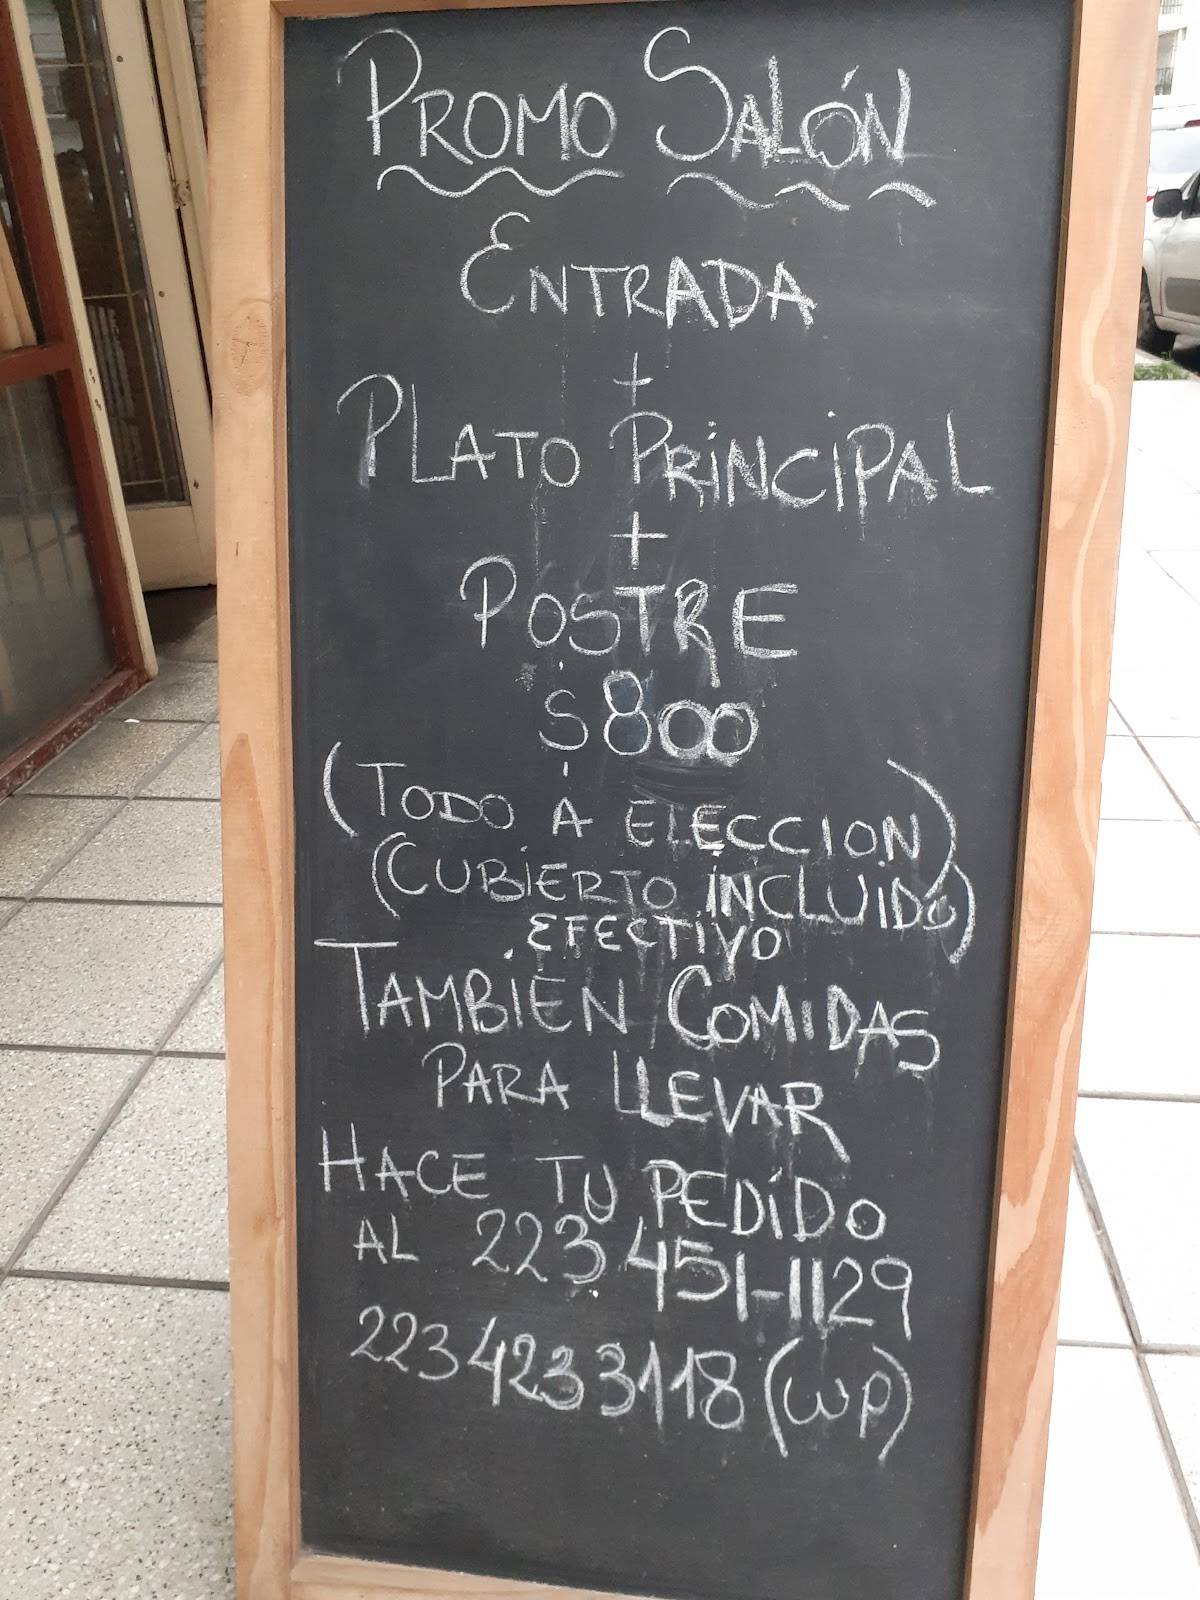 PROMO SALÓN
ENTRADA
+
PLATO PRINCIPAL
+
POSTRE
$800
(TODO A ELECCION)
(CUBIERTO INCLUIDO)
EFECTIVO
TAMBIÉN COMIDAS
PARA LLEVAR
HACE TU PEDIDO
AL 223 451-1129
223 4233118 (WP)